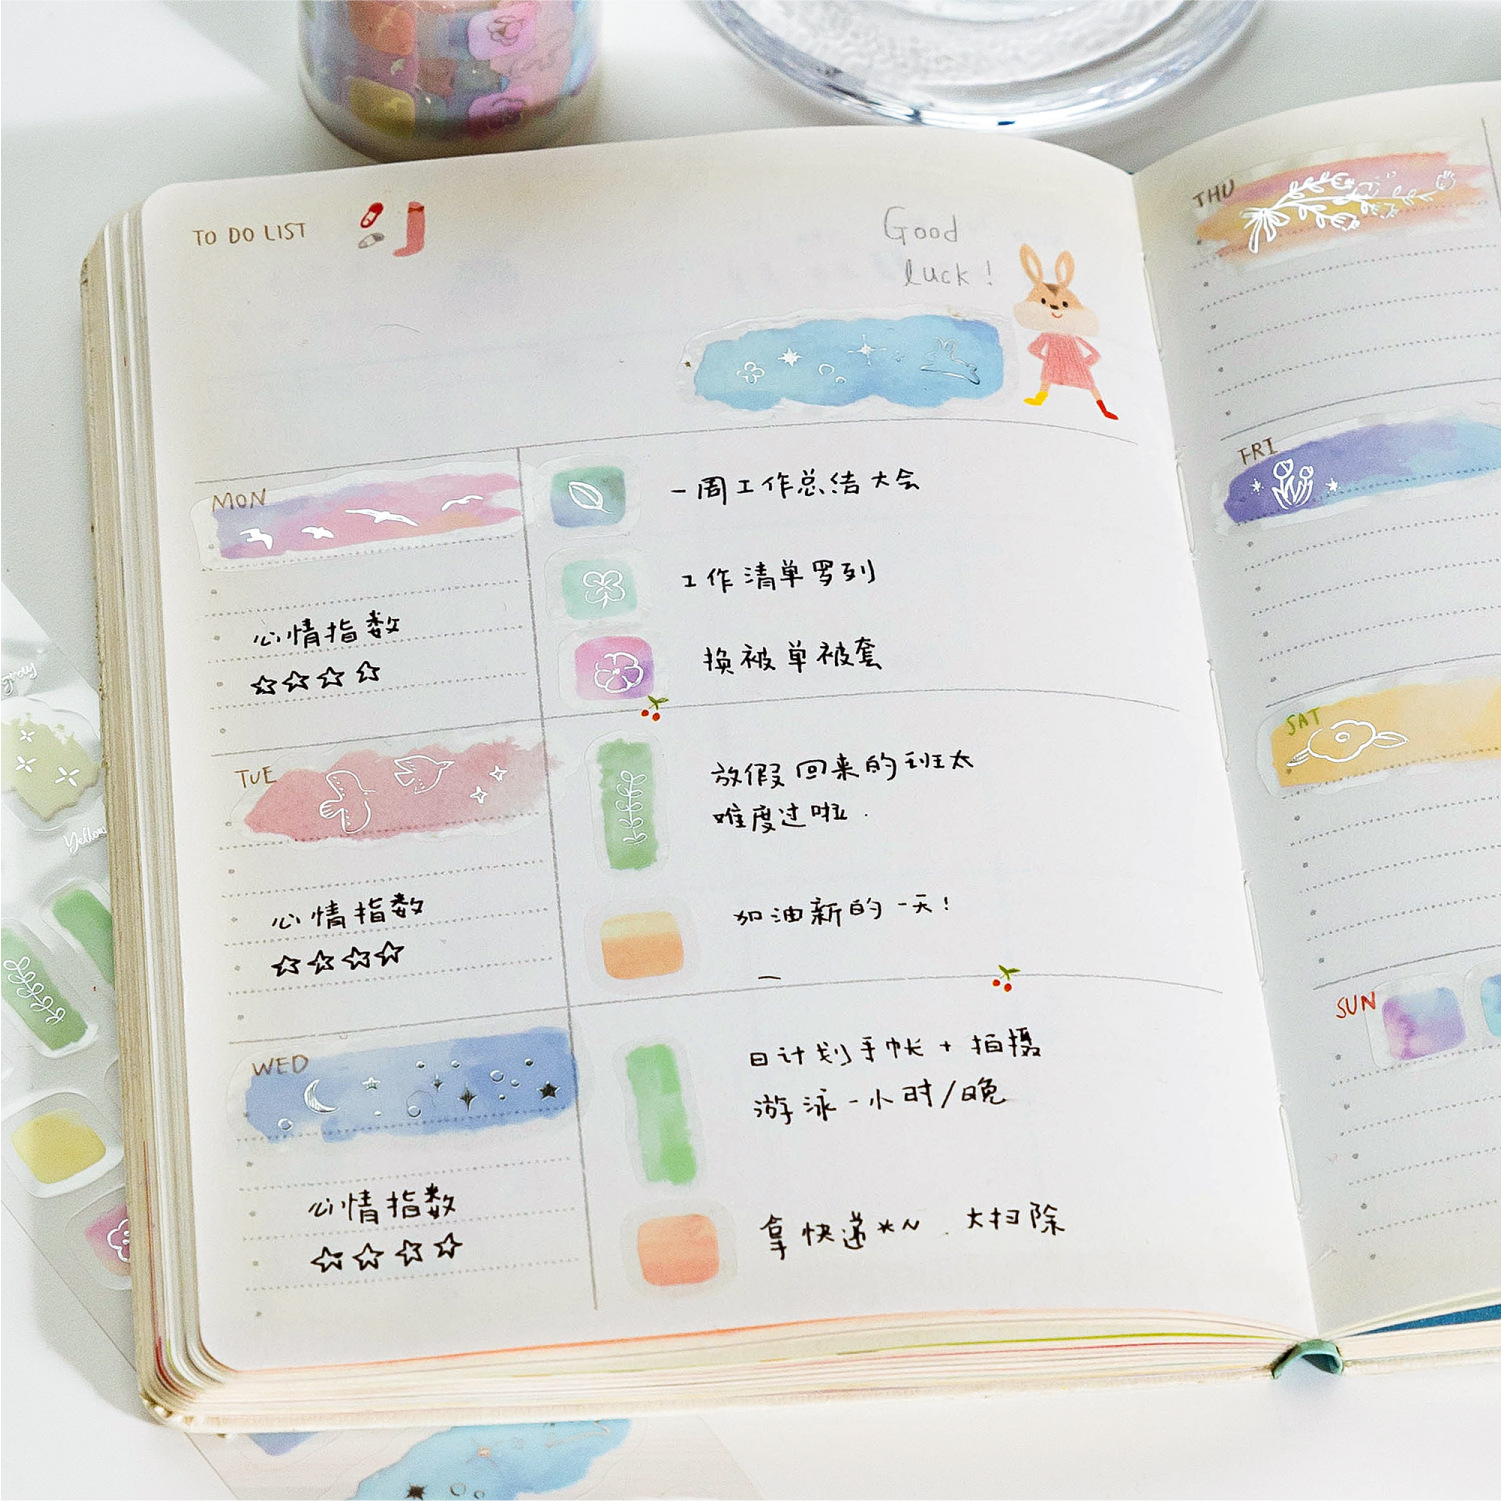 TO DO LIST
Good
luck!
MON
心情指数
☆☆☆☆
一周工作总结大会
工作清单罗列
换被单被套
TUE
心情指数
☆☆☆☆
放假回来的班太
难度过啦.
加油新的一天!
WED
心情指数
☆☆☆☆
日计划手帐+拍摄
游泳一小时/晚
拿快递*N.大扫除
THU
FRI
SAT
SUN
Yellow